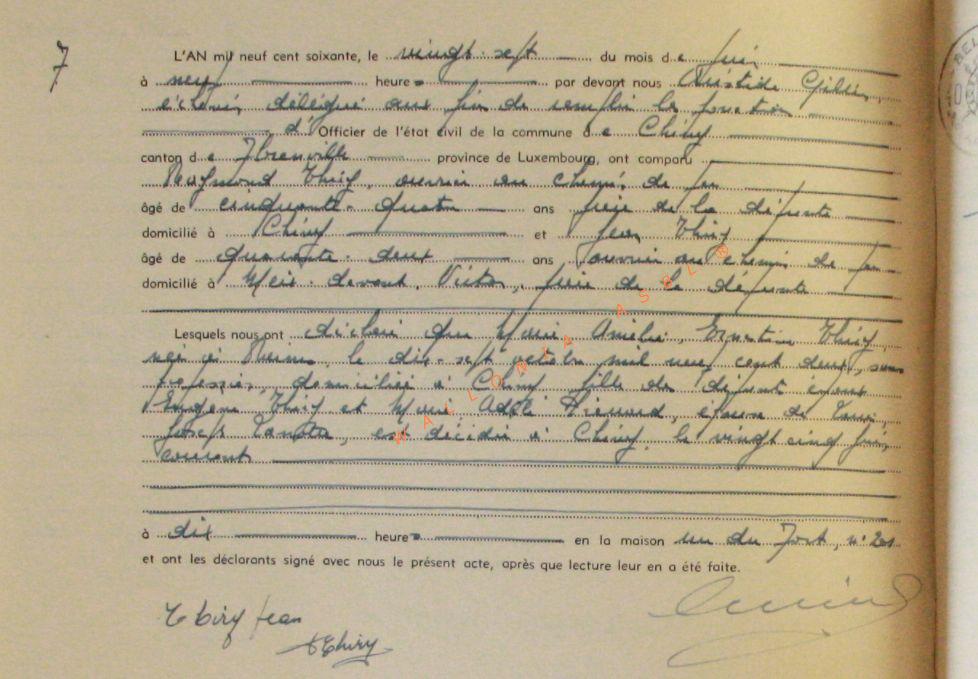 7
L'AN mil neuf cent soixante, le vingt-sept du mois de juin
à neuf heures par devant nous Aristide
échevin délégué aux fin de remplir la fonction
d' Officier de l'état civil de la commune de Chiny
canton de Florenville province de Luxembourg, ont comparu
Raymond Thiry, ouvrier au chemin de fer
âgé de cinquante-quatre ans frère de la défunte
domicilié à Chiny et Jean Thiry
âgé de quarante-deux ans ouvrier au chemin de fer
domicilié à Meix-devant-Virton, frère de la défunte
Lesquels nous ont déclaré que Marie Amélie Ernestine Thiry,
née à le dix-sept octobre mil neuf cent deux, sans
profession, domiciliée à Chiny fille des défunts époux
Eugène Thiry et Marie Adèle épouse de Louis
Joseph est décédée à Chiny, le vingt cinq juin
courant
à dix heures en la maison rue du Fort, n° 201
et ont les déclarants signé avec nous le présent acte, après que lecture leur en a été faite.
Thiry Jean
Thiry
WALLONIA ASBL ©